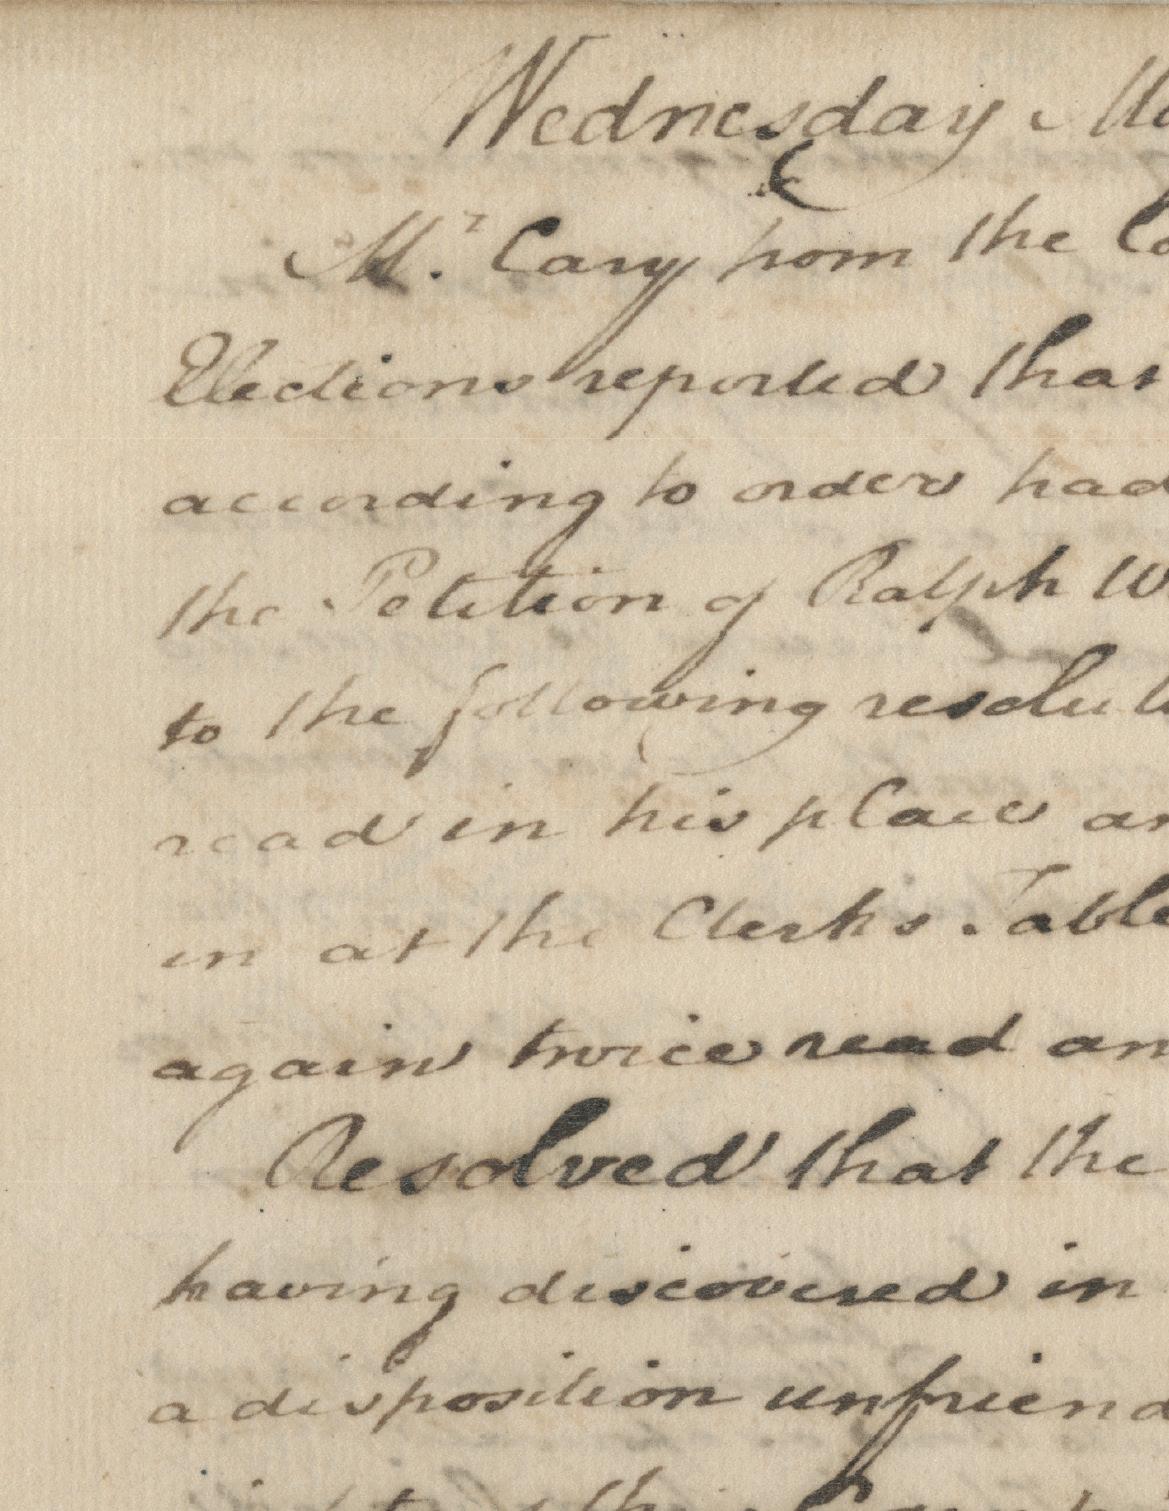 Wednesday Ma
Mr. Cary from the Co
Elections reported that
according to order had
the Petition of Ralph W
to the following resolut
read in his place an
in at the Clerks Table
again twice read an
Resolved that the
having discovered in
a disposition unfriend